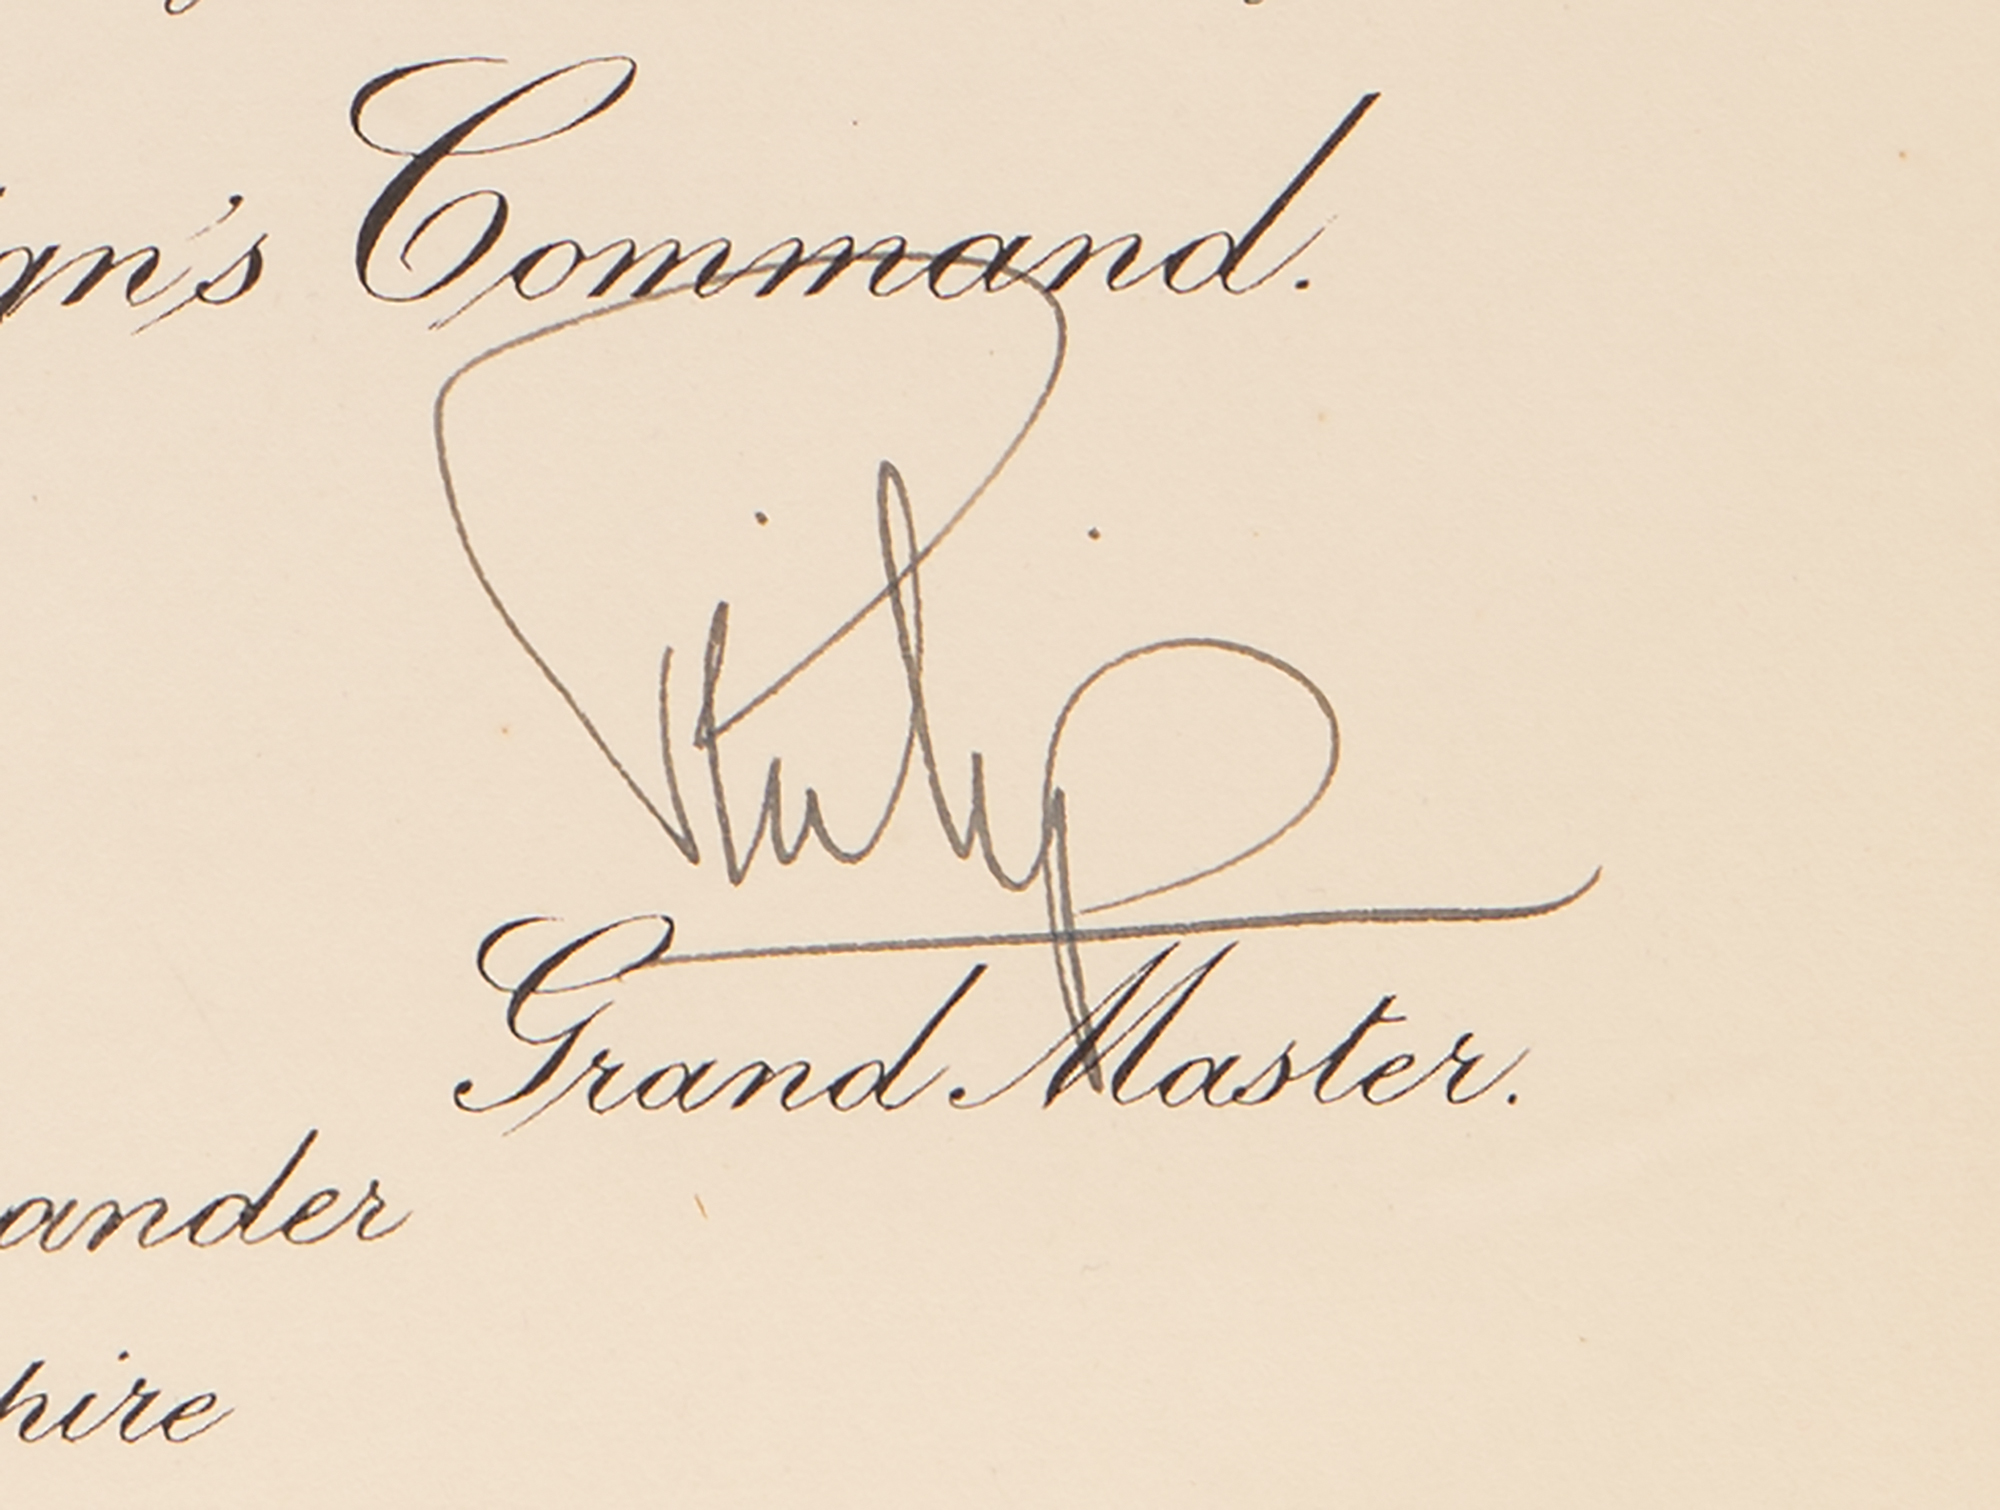 ign's Command.
Philip
Grand Master.
ander
hire